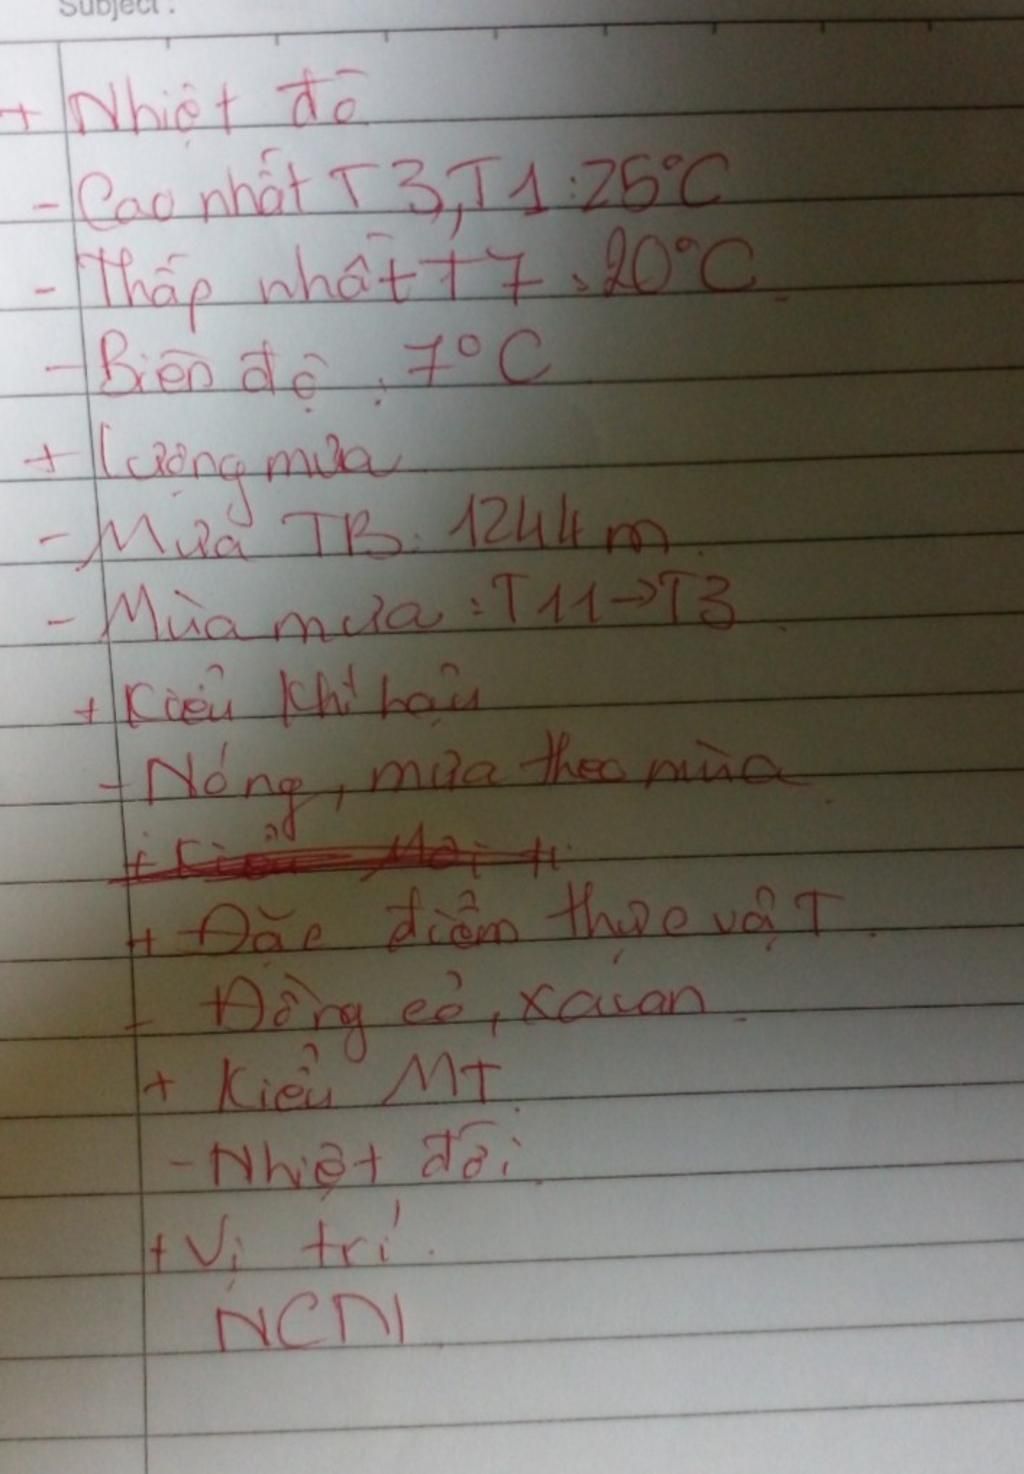 Subject :
+ Nhiệt độ
- Cao nhất T3, T1 : 25°C
- Thấp nhất T7 : 20°C
- Biên độ : 7°C
+ Lượng mưa
- Mưa TB : 1244 m
- Mùa mưa : T11 → T3
+ Kiểu khí hậu
- Nóng, mưa theo mùa
+ Đặc điểm thực vật
- Đồng cỏ, xavan
+ Kiểu MT
- Nhiệt đới
+ Vị trí
NCN